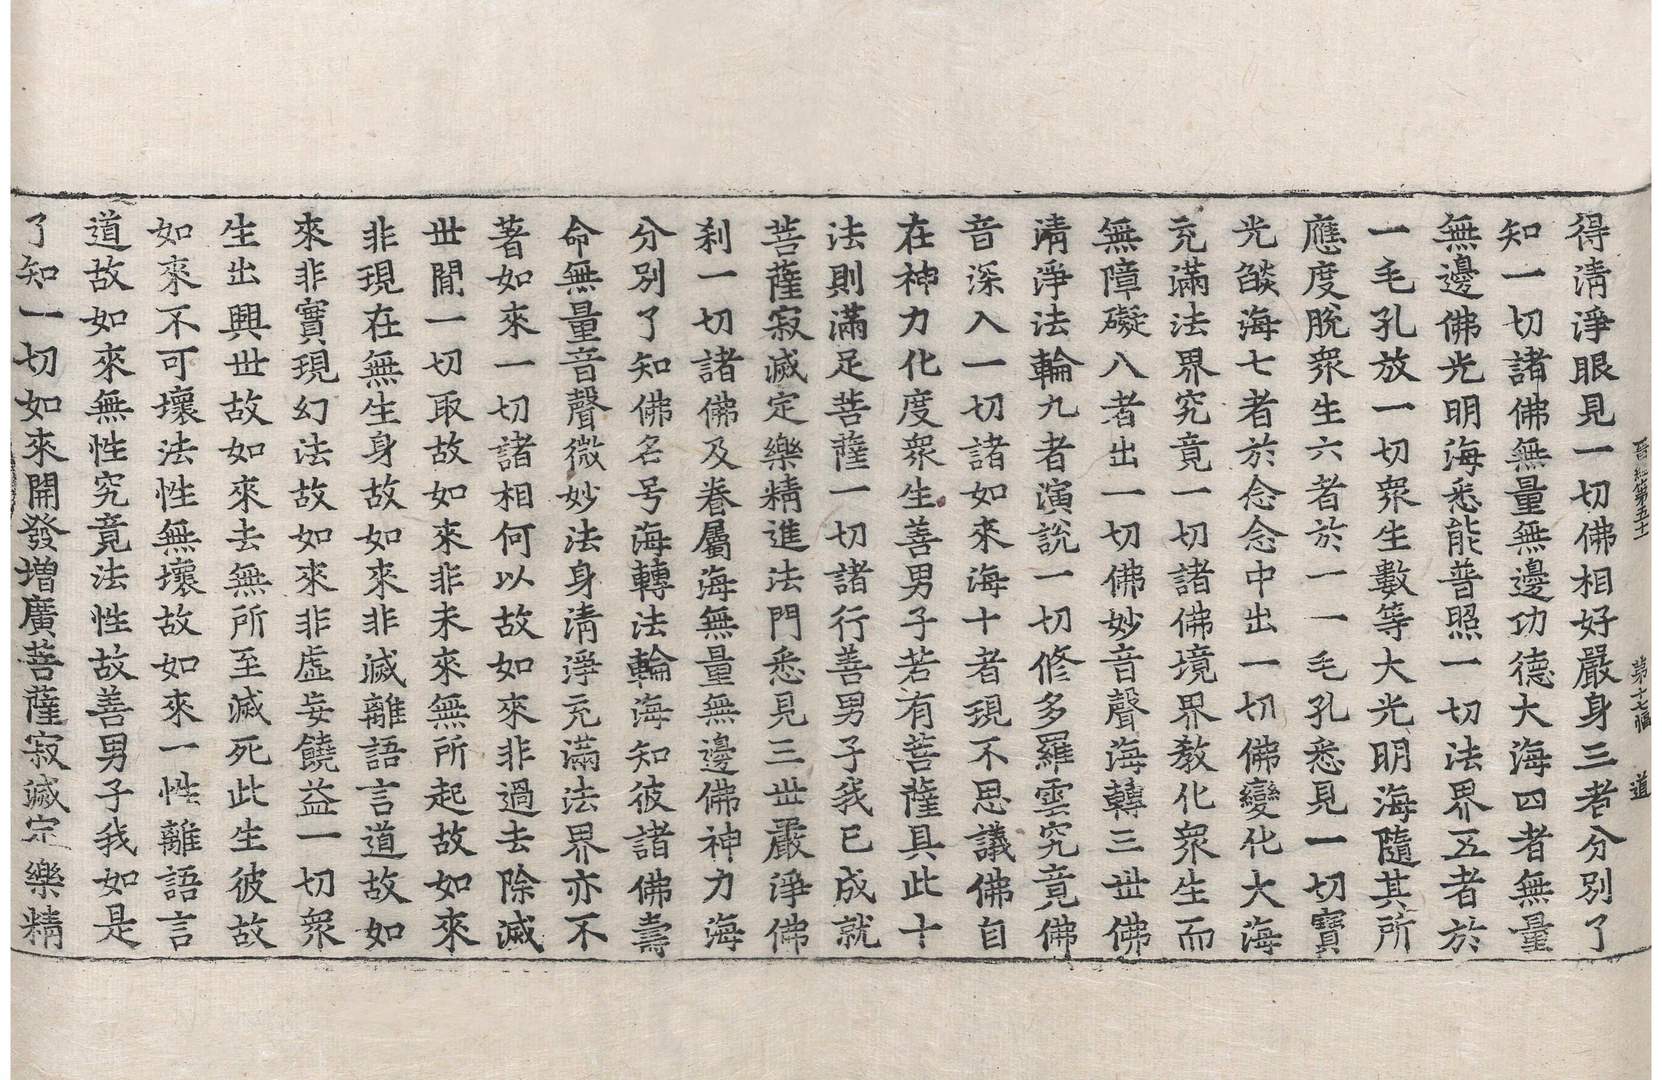 晉經第五十　第十七幅　道
得清淨眼見一切佛相好嚴身三者分別了
知一切諸佛無量無邊功德大海四者無量
無邊佛光明海悉能普照一切法界五者於
一毛孔放一切眾生數等大光明海隨其所
應度脫眾生六者於一一毛孔悉見一切寶
光燄海七者於念念中出一切佛變化大海
充滿法界究竟一切諸佛境界教化眾生而
無障礙八者出一切佛妙音聲海轉三世佛
清淨法輪九者演說一切修多羅雲究竟佛
音深入一切諸如來海十者現不思議佛自
在神力化度眾生善男子若有菩薩具此十
法則滿足菩薩一切諸行善男子我已成就
菩薩寂滅定樂精進法門悉見三世嚴淨佛
剎一切諸佛及眷屬海無量無邊佛神力海
分別了知佛名号海轉法輪海知彼諸佛壽
命無量音聲微妙法身清淨充滿法界亦不
著如來一切諸相何以故如來非過去除滅
世間一切取故如來非未來無所起故如來
非現在無生身故如來非滅離語言道故如
來非實現幻法故如來非虛妄饒益一切眾
生出興世故如來去無所至滅死此生彼故
如來不可壞法性無壞故如來一性離語言
道故如來無性究竟法性故善男子我如是
了知一切如來開發增廣菩薩寂滅定樂精